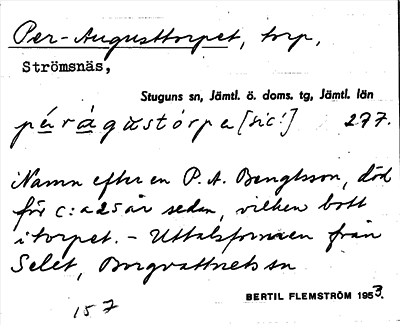 Per-Augusttorpet, torp,
Strömsnäs,
Stuguns sn, Jämtl. ö. doms. tg, Jämtl. län
pérágustórpa [sic!] 277.
Namn efter en P. A. Bengtsson, död
för c:a 25 år sedan, vilken bott
i torpet. – Uttalsformen från
Selet, Borgvattnets sn
BERTIL FLEMSTRÖM 1953.
157